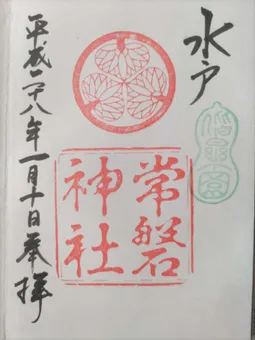 水戸
偕楽園
常磐
神社
平成二十八年一月十日奉拝